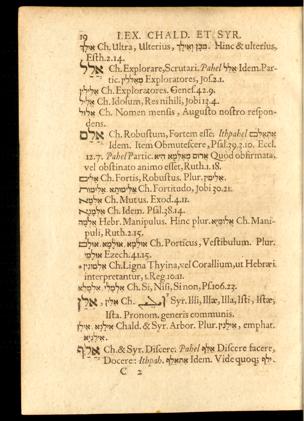 19 LEX. CHALD. ET SYR.
אילך Ch. Ultra, Ulterius, מכן ואילך. Hinc & ulterius,
Esth. 2. 14.
אלל Ch. Explorare, Scrutari. Pahel אליל Idem. Par-
tic. מאללין Exploratores, Jos. 2. 1.
אלילין Ch. Exploratores. Genes. 42. 9.
אליל Ch. Idolum, Res nihili, Job. 13. 4.
אלול Ch. Nomen mensis, Augusto nostro respon-
dens.
אלם Ch. Robustum, Fortem esse. Ithpahel
Idem. Item Obmutescere, Psal. 39. 3. 10. Eccl.
12. 7. Pahel Partic. Quod obfirmata,
vel obstinato animo esset, Ruth. 1. 18.
אלים Ch. Fortis, Robustus. Plur. אלימין.
Ch. Fortitudo, Job 30. 21.
Ch. Mutus. Exod. 4. 11.
Ch. Idem. Psal. 38. 14.
Hebr. Manipulus. Hinc plur. Ch. Mani-
puli, Ruth. 2. 15.
אולם. Ch. Porticus, Vestibulum. Plur.
Ezech. 41. 15.
Ch. Ligna Thyina, vel Corallium, ut Hebræi
interpretantur, 1. Reg. 10. 11.
Ch. Si, Nisi, Sinon, Psal. 106. 23.
אלין, אלן Ch. Syr. Illi, Illæ, Illa, Isti, Istæ,
Ista. Pronom. generis communis.
אילן Chald. & Syr. Arbor. Plur. אילנין, emphat.
אילניא.
אלף Ch. & Syr. Discere. Pahel אליף Discere facere,
Docere: Ithpah. Idem. Vide quoq; ילף.
C 2